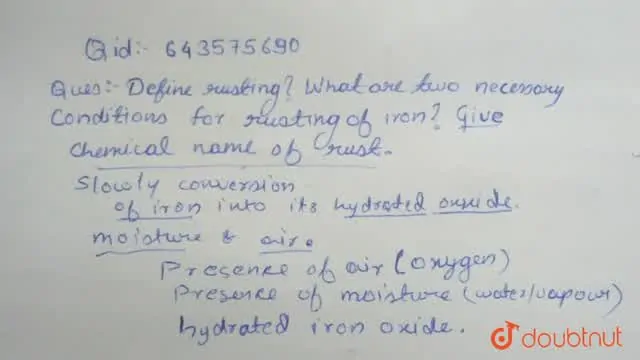 Qid:- 643575690
Ques:- Define rusting? What are two necessary
Conditions for rusting of iron? Give
chemical name of rust.
Slowly conversion
of iron into its hydrated oxide.
moisture & air.
Presence of air (oxygen)
Presence of moisture (water/vapour)
hydrated iron oxide.
doubtnut